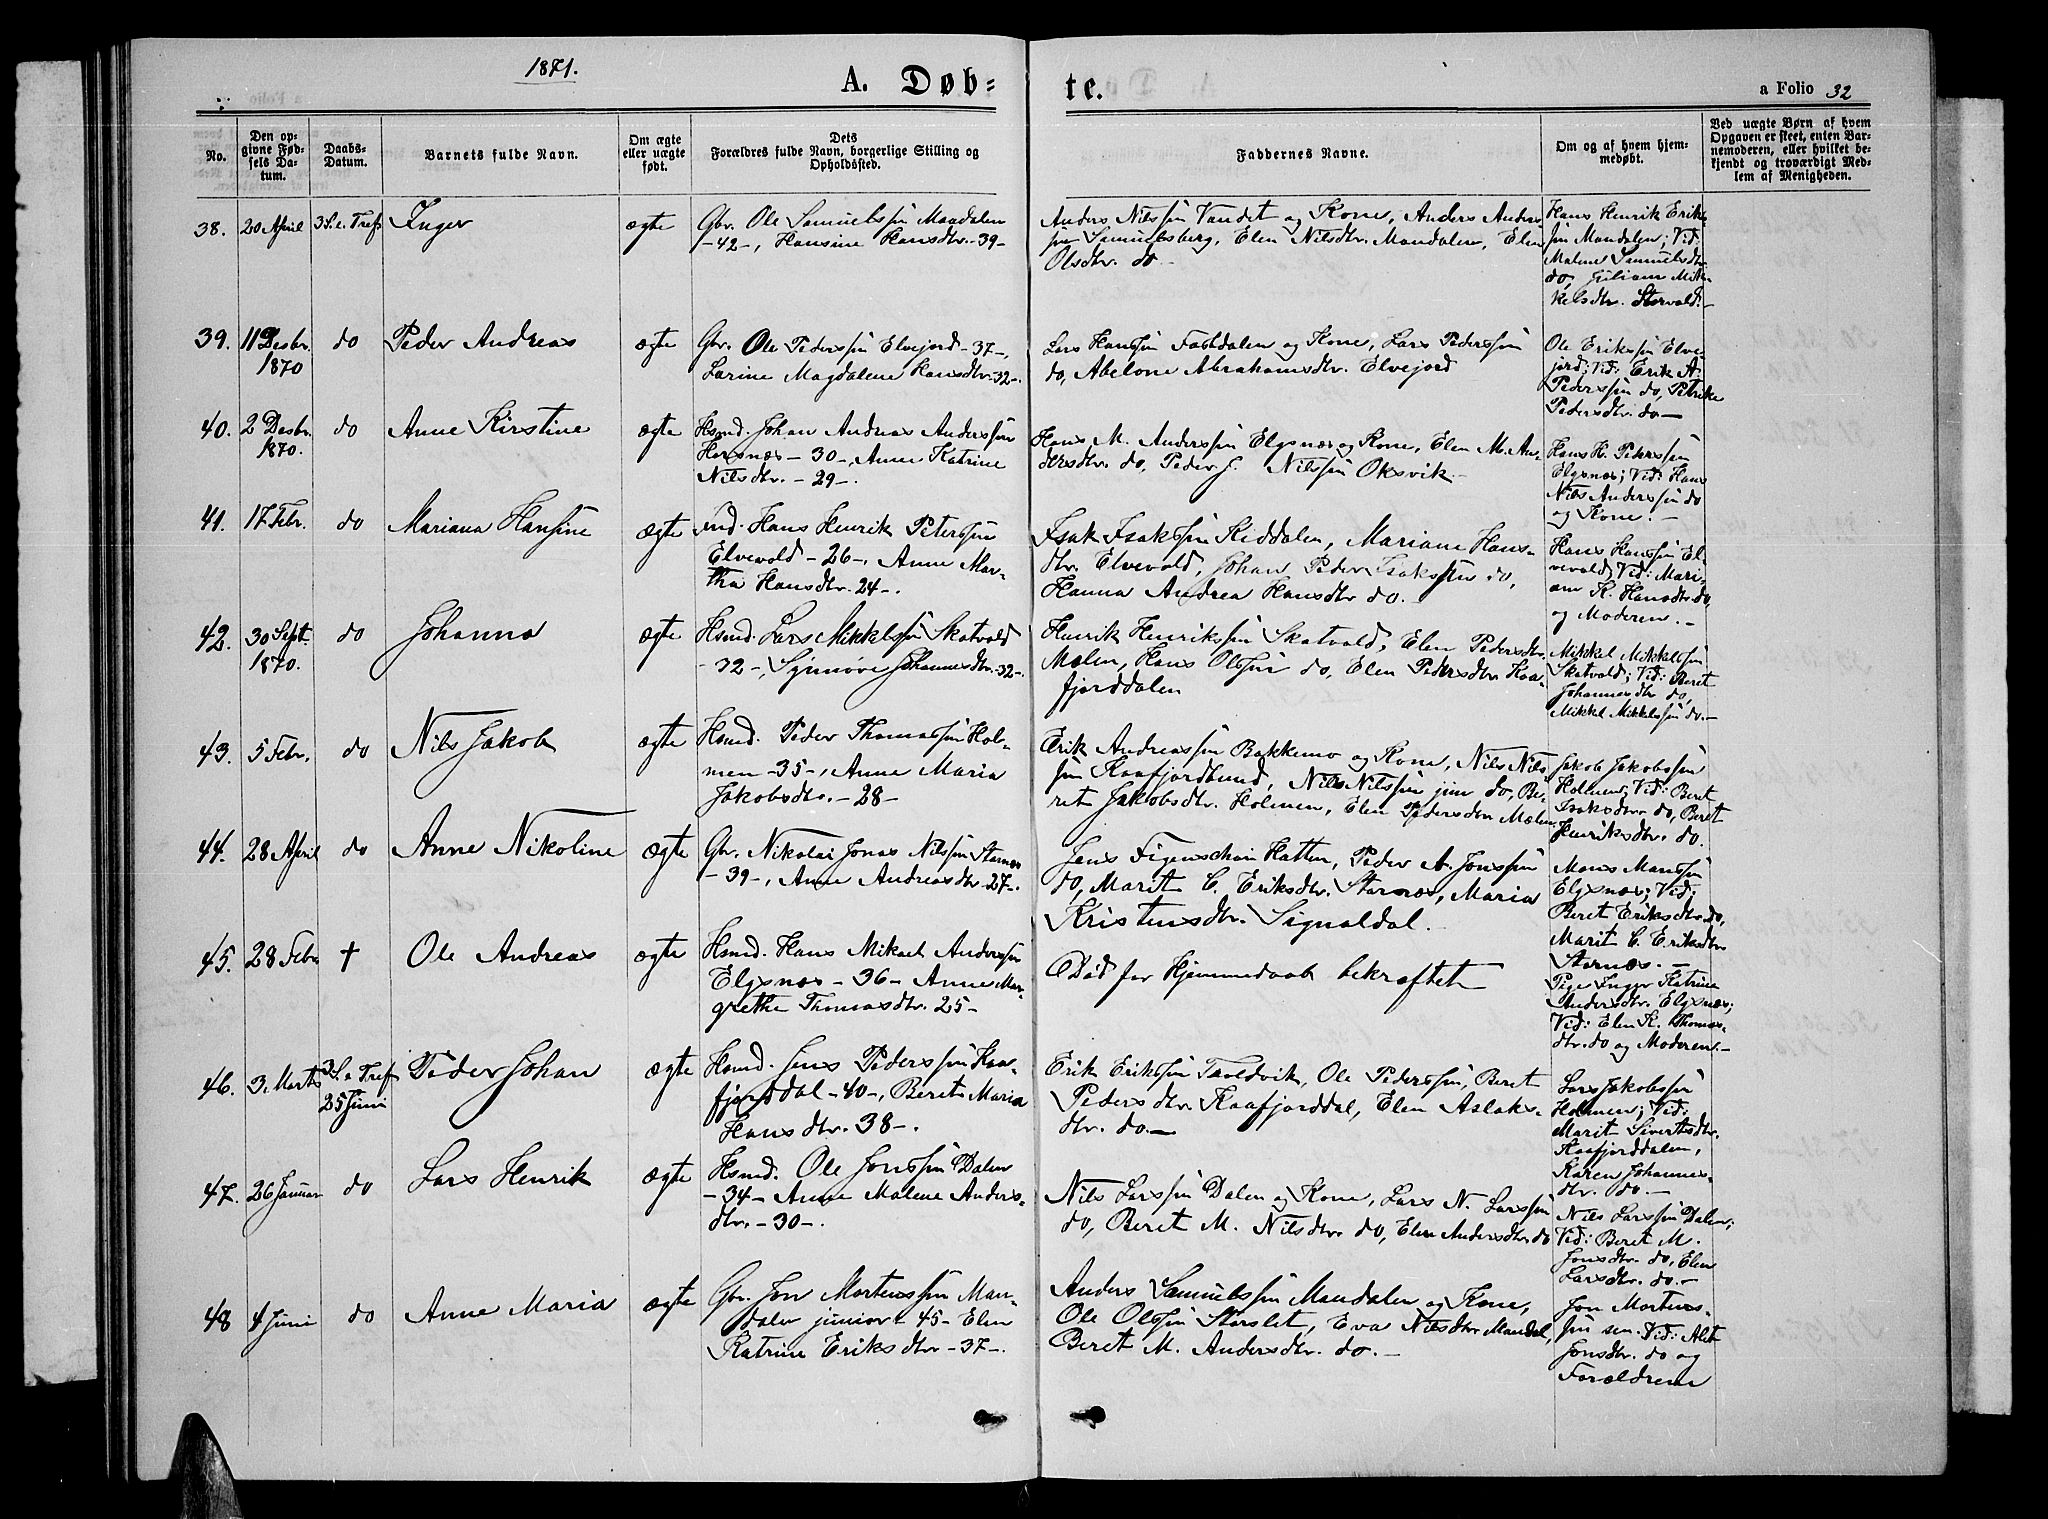 1871.
A. Døb=
te.
a Folio 32
No.
Den op=
givne Fød=
sels Da=
tum.
Daabs=
Datum.
Barnets fulde Navn.
Om ægte
eller uægte
født.
Dets
Forældres fulde Navn, borgerlige Stilling og
Opholdssted.
Faddernes Navne.
Om og af hvem hjem=
medøbt.
Ved uægte Børn af hvem
Opgaven er skeet, enten Bar=
nemoderen, eller hvilket be=
kjendt og troværdigt Med=
lem af Menigheden.
38. 20 April 3 S. e. Tref Inger ægte
Gbr. Ole Samuelssøn Mandalen
-42-, Hansine Hansdtr. -39-
Anders Nilssøn Vandet og Kone, Anders Anders
søn Samuelsberg, Elen Nilsdtr. Mandalen, Elen
Olsdtr. do
Hans Henrik Erik
søn Mandalen; Vid:
Malene Samuelsdtr.
do, Juliane Mik
kelsdtr. Storvold.-
39. 11 Desbr. 1870 do Peder Andreas ægte
Gbr. Ole Pederssøn Elvejord -37-,
Larine Magdalene Hansdtr. -32-.
Lars Hanssøn Fastdalen og Kone, Lars Pederssøn
do, Abelone Abrahamsdtr. Elvejord
Ole Erikssøn Elve-
jord; Vid: Erik A.
Pederssøn do, Petrike
Pedersdtr. do-
40. 2 Desbr. 1870. do Anne Kirstine ægte
Hsmd. Johan Andreas Anderssøn
Horsnæs - 30 -, Anne Katrine
Nilsdtr. - 29 -.
Hans M. Anderssøn Elgsnæs og Kone, Elen M. An-
dersdtr. do, Peder J. Nilssøn Oksvik -
Hans H. Pederssøn
Elgsnæs; Vid: Hans
Nils Anderssøn do
og Kone. -
41. 17 Febr. do Mariana Hansine ægte
Hans Henrik Peterssøn
Elvevold - 26 -, Anne Mar-
tha Hansdtr. 24 -.
Isak Isakssøn Kiddalen, Mariane Hans-
dtr. Elvevold, Johan Peder Isakssøn do,
Hanna Andrea Hansdtr do. -
Hans Hanssøn El-
vevold; Vid: Mari-
ane K. Hansdtr. do,
og Moderen. -
42. 30 Sept. 1870. do Johanna ægte
Hsmd. Lars Mikkelssøn Skatvold
- 32 -, Synnøve Johannesdtr. -32-.
Henrik Henrikssøn Skatvold, Elen Pedersdtr.
Mælen, Hans Olssøn do, Elen Pedersdtr. Kaa-
fjorddalen
Mikkel Mikkelssøn
Skatvold; Vid: Beret
Johannesdtr do,
Mikkel Mikkelssøn do. -
43. 5 Febr. do Nils Jakob ægte
Hsmd. Peder Thomassøn Hol-
men -35-, Anne Maria
Jakobsdtr. - 28 -
Erik Andreassøn Bakkemo og Kone, Nils Nils-
søn Kaafjordbund, Nils Nilssøn jun do, Be-
ret Jakobsdtr. Holmen, Elen Pedersdtr Mælen
Jakob Jakobssøn
Holmen; Vid: Beret
Isaksdtr. do, Beret
Henriksdtr. do.
44. 28 April do Anne Nikoline ægte
Gbr. Nikolai Jonas Nilssøn Stornæs
- 39 -, Anne Andreasdtr. -27-.
Jens Figenschau Hatten, Peder A. Jonssøn
do, Marit C. Eriksdtr. Stornæs, Maria
Kristensdtr. Signaldal.
Mons Monssøn
Elgsnæs; Vid;
Beret Eriksdtr. do,
Marit C. Eriksdtr.
Stornæs. -
45. 28 Febr † Ole Andreas ægte
Hsmd. Hans Mikael Anderssøn
Elgsnæs - 36 - Anne Mar-
grethe Thomasdtr. 25 -
Død før Hjemmedaab bekræftet
Pige Inger Katrine
Andersdtr. Elgsnæs;
Vid: Elen K. Thomas-
dtr. do og Moderen. -
46. 3. Marts 3 S. e Tref 25 Juni Peder Johan ægte
Hsmd. Jens Pederssøn Kaa-
fjorddal -40-, Beret Maria
Hansdtr. 38 -.
Erik Erikssøn Troldvik, Ole Pederssøn, Beret
Pedersdtr. Kaafjorddal, Elen Aslaks-
dtr. do.-
Lars Jakobssøn
Holmen; Vid:
Marit Sivertsdtr.
Kaafjorddalen,
Karen Johannes-
dtr. do. -
47. 26 Januar do Lars Henrik ægte
Hsmd. Ole Jonssøn Dalen
- 34 - Anne Malene Anders-
dtr. - 30 -.
Nils Larssøn Dalen og Kone, Lars N. Larssøn
do, Beret M. Nilsdtr. do, Elen Andersdtr. do
Nils Larssøn Dalen;
Vid: Beret M.
Jonsdtr. do, Elen
Larsdtr. do. -
48 4 Juni do Anne Maria ægte
Gbr. Jon Mortenssøn Man-
dalen junior - 45 - Elen
Katrine Eriksdtr - 37 -.
Anders Samuelssøn Mandalen og Kone,
Ole Olssøn Storslet, Eva Nilsdtr. Mandal,
Beret M. Andersdtr. do. -
Jon Mortens-
søn sen. Vid: Alet
Jonsdtr. do og
Forældrene